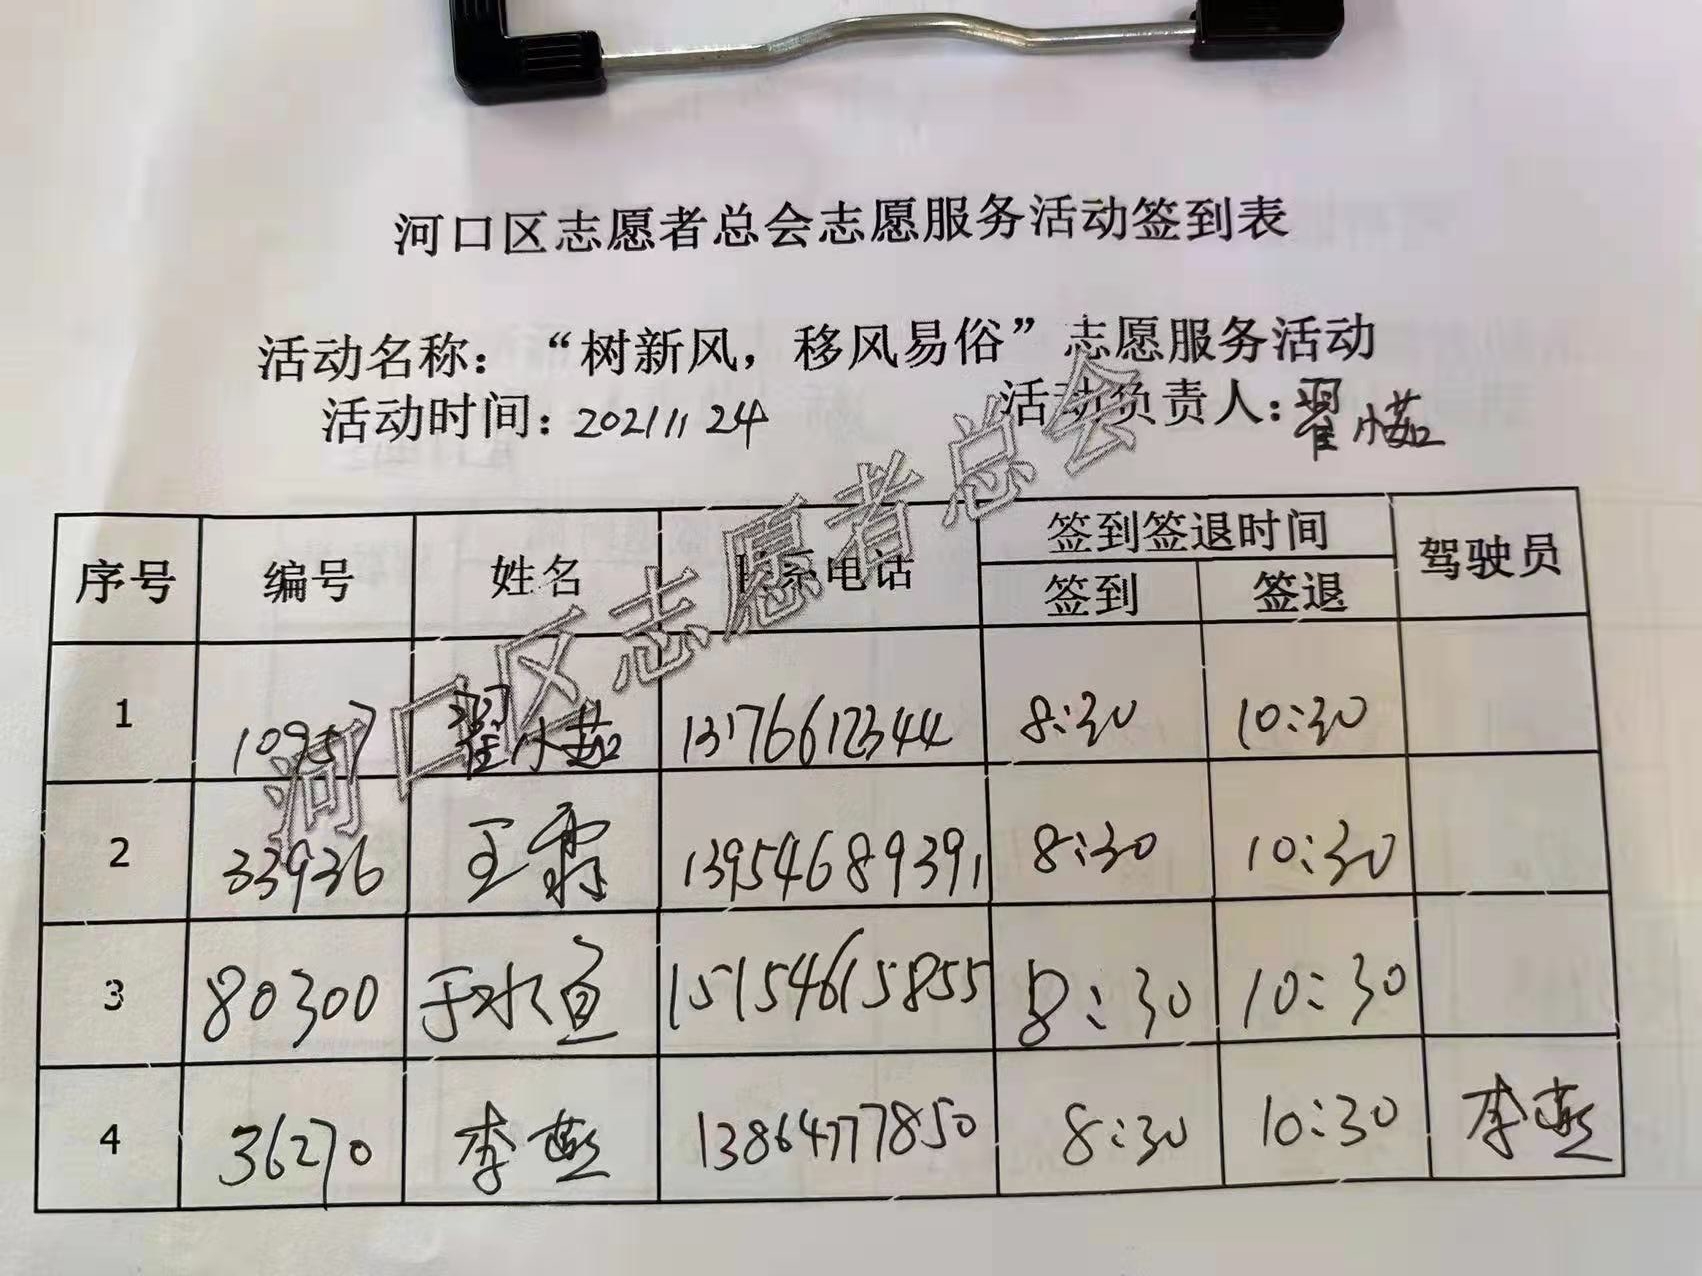 河口区志愿者总会志愿服务活动签到表
活动名称：“树新风，移风易俗”志愿服务活动
活动时间：2021 11 24 活动负责人：翟小茹
序号 编号 姓名 联系电话 签到签退时间 驾驶员
签到 签退
1 10957 翟小茹 13176612344 8:30 10:30
2 33936 王霜 13954689391 8:30 10:30
3 80300 于水 15154615855 8:30 10:30
4 36270 李燕 13864777850 8:30 10:30 李燕
河口区志愿者总会